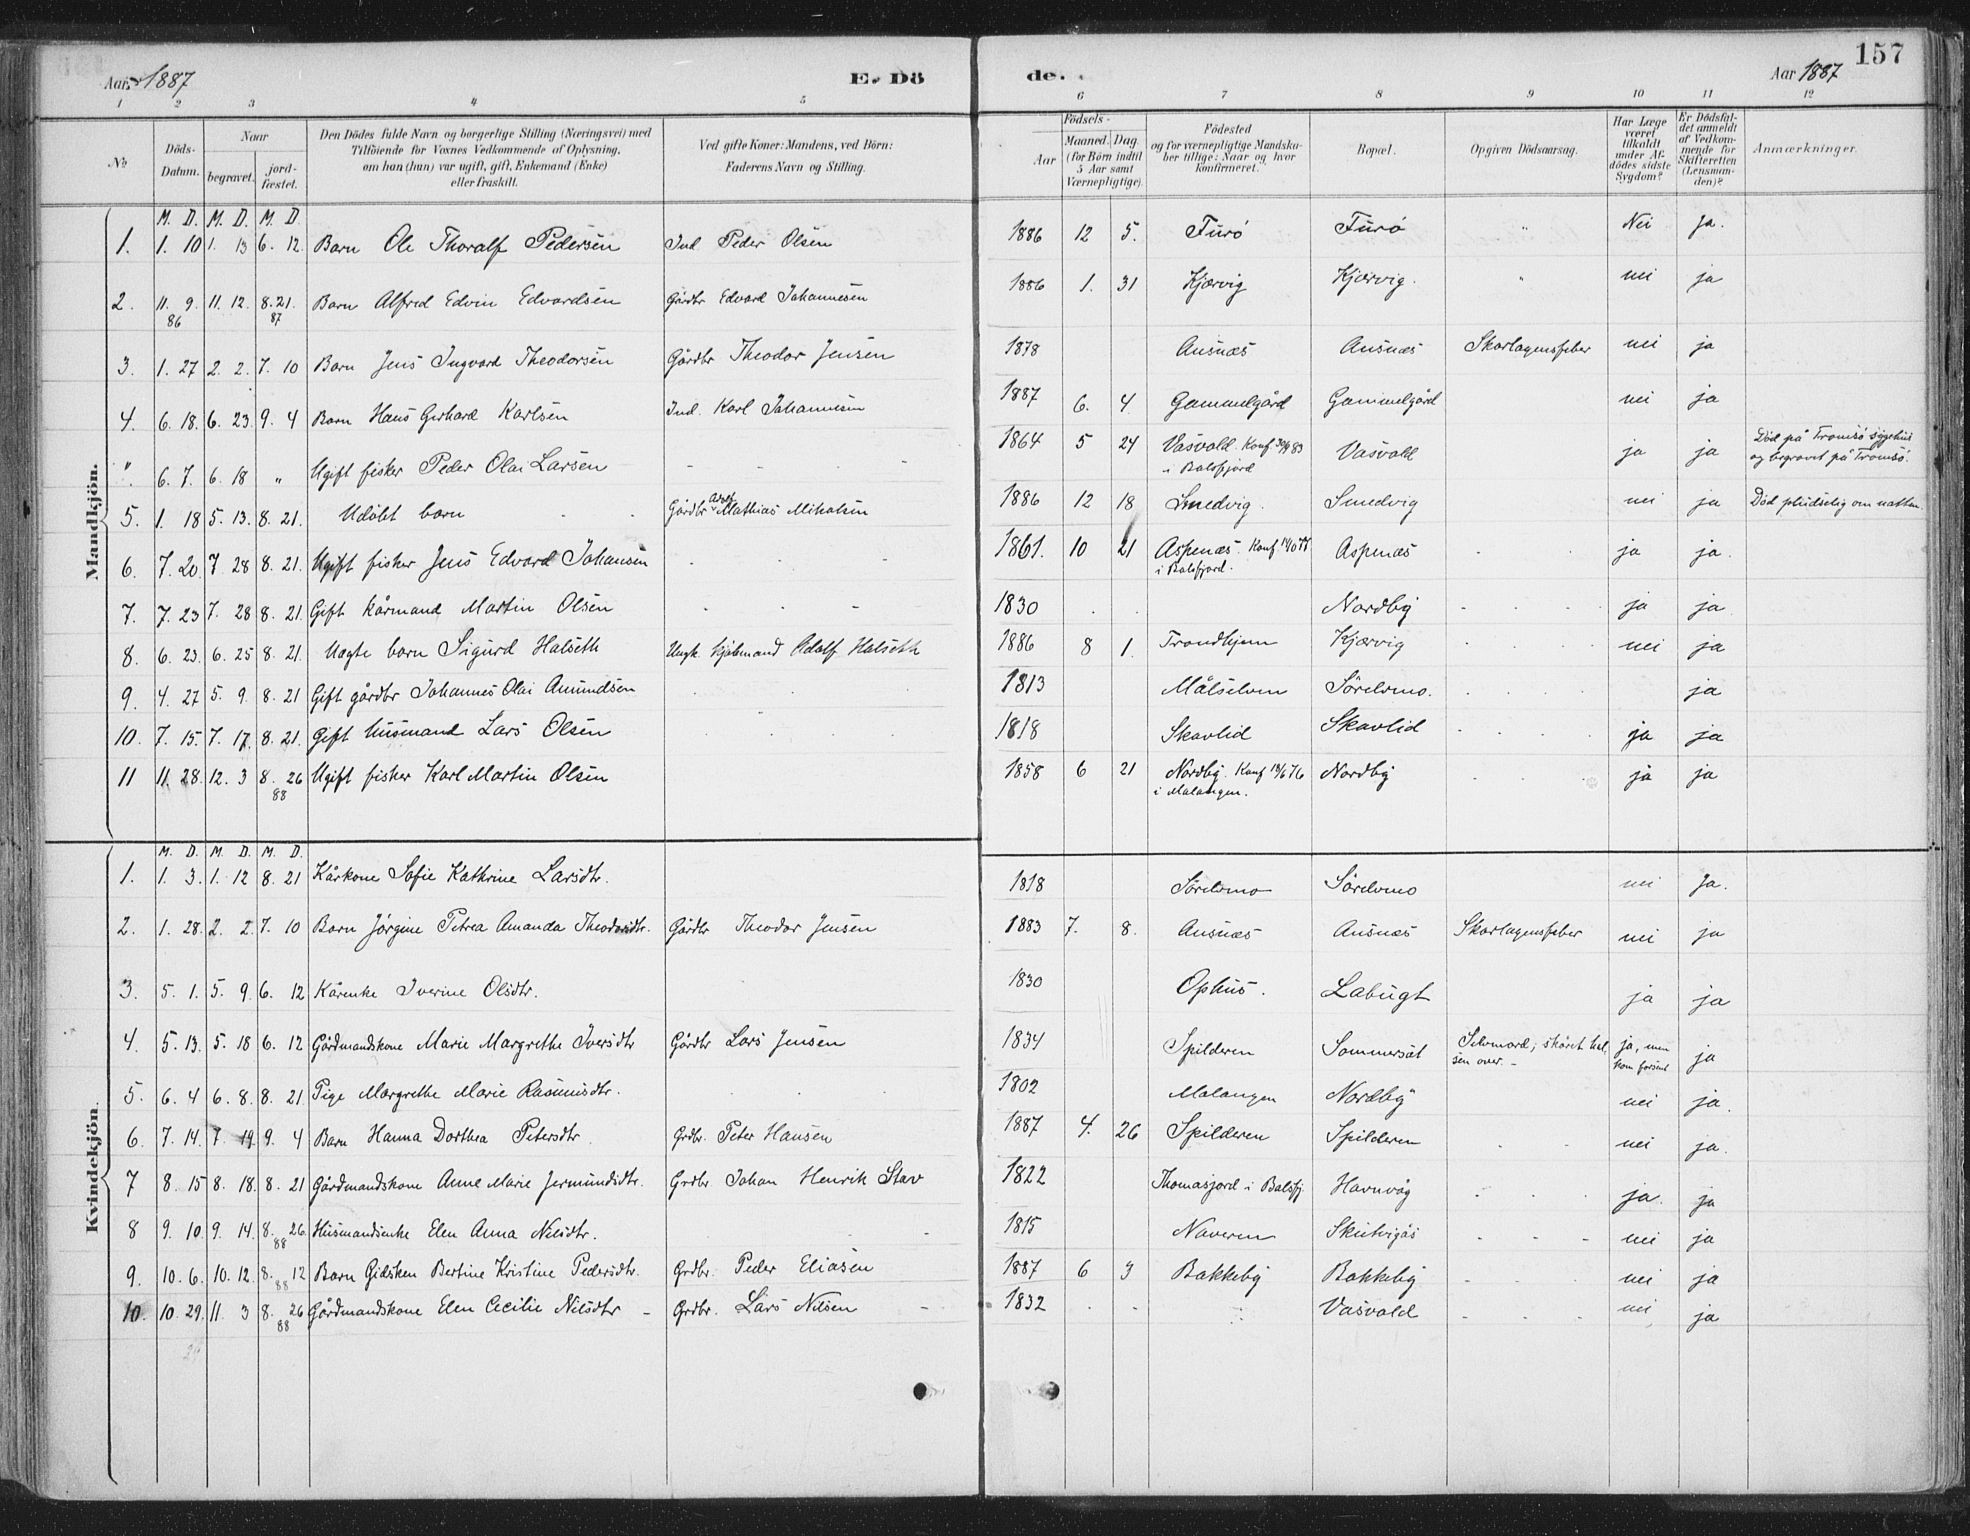 157
Aar 1887 E. Dö de. Aar 1887
1 2 3 4 5 6 7 8 9 10 11 12
No
Döds-Datum.
Naar
begravet.
jord-fæstet.
Den Dödes fulde Navn og borgerlige Stilling (Næringsvei) med
Tilföiende for Voxnes Vedkommende af Oplysning,
om han (hun) var ugift, gift, Enkemand (Enke)
eller fraskilt.
Ved gifte Koner: Mandens, ved Börn:
Faderens Navn og Stilling.
Födsels-
Aar
Maaned. Dag
(for Börn indtil
5 Aar samt
Værnepligtige).
Födested
og for værnepligtige Mandska-
ber tillige: Naar og hvor
konfirmeret.
Bopæl.
Opgiven Dödsaarsag.
Har Læge
været
tilkaldt
under Af-
dödes sidste
Sygdom?
Er Dödsfal-
det anmeldt
af Vedkom-
mende for
Skifteretten
(Lensman-
den)?
Anmærkninger.
Mandkjön.
M. D. M. D. M. D.
1. 1. 10 1. 13 6. 12 Barn Ole Thoralf Pedersen Ind Peder Olsen 1886 12 5. Furö Furö " Nei Ja.
2. 11. 9. 86 11. 12. 8. 21. 87 Barn Alfred Edvin Edvardsen Gårdbr Edvard Johannesen 1886 1. 31 Kjærvig Kjærvig. " nei ja
3. 1. 27 2. 2. 7. 10 Barn Jens Ingvard Theodorsen Gårdbr Theodor Jensen 1878 Ausnæs Ausnæs Skarlagensfeber nei ja
4. 6. 18. 6. 23. 9. 4 Barn Hans Gerhard Karlsen Ind. Karl Johannesen 1887 6. 4. Gammelgård Gammelgård nei ja
". 6. 7. 6. 18 " Ugift fisker Peder Olai Larsen 1864 5 24 Vasvold. Konf 83 i Balsfjord Vasvold ja ja Död på Tromsö sygehus og begravet på Tromsö.
5. 1. 18 5. 13. 8. 21. Udöbt barn Gårdbr Mathias Mikalsen 1886 12 18 Smedvig. Smedvig nei ja Död pludselig om natten.
6. 7. 20. 7. 28 8. 21. Ugift fisker Jens Edvard Johansen 1861. 10 21 Aspenæs. Konf i Balsfjord. Aspenæs ja ja.
7. 7. 23 7. 28 8. 21. Gift kårmand Martin Olsen 1830 Nordby ja ja
8. 6. 23. 6. 25 8. 21. Uægte barn Sigurd Halseth Ungk. Adolf Halseth 1886 8 1. Trondhjem Kjærvig nei ja
9. 4. 27 5. 9. 8. 21 Gift gårdbr Johannes Olai Amundsen 1813 Målselven Sörelvmo. ja
10. 7. 15. 7. 17. 8. 21. Gift husmand Lars Olsen 1818 Skavlid Skavlid ja ja
11 11. 28. 12. 3 8. 26 88 Ugift fisker Karl Martin Olsen 1858 6 21 Nordby. Konf 18/6 76 i Malangen. Nordby ja ja
Kvindekjön.
M. D. M. D. M. D.
1. 1. 3. 1. 12 8. 21 Kårkone Sofie Kathrine Larsdtr. 1818 Sörelvmo Sörelvmo nei Ja.
2. 1. 28. 2. 2. 7. 10 Barn Jörgine Petrea Amanda Theodorsdtr. Gårdbr Theodor Jensen 1883 7. 8. Ausnæs Ausnæs Skarlagensfeber nei ja
3. 5. 1. 5. 9. 6. 12 Kårenke Iverine Olsdtr. 1830 Ophus. Labugt ja ja
4. 5. 13. 5. 18 6. 12 Gårdmandskone Marie Margrethe Iversdtr Gårdbr Lars Jensen 1834 Spilderen Sommersæt Selvmord; skåret halsen over. ja, men kom forsent ja
5. 6. 4 6. 8. 8. 21 Pige Margrethe Marie Rasmusdtr. 1802 Malangen Nordby nei ja.
6. 7. 14. 7. 19 9. 4 Barn Hanna Dorthea Petersdtr. Grdbr. Peter Hansen 1887 4. 26 Spilderen Spilderen nei ja.
7 8. 15 8. 18. 8. 21 Gårdmandskone Anne Marie Jermundsdtr. Grdbr Johan Henrik Stav 1822 Thomasjord i Balsfj. Havnvåg ja. ja
8 9. 10 9. 14. 8. 26. 88 Husmandsenke Elen Anna Nilsdtr. 1815 Naveren nei ja
9. 10. 6. 10. 12. 8. 12 88 Barn Gidsken Bertine Kristine Pedersdtr. Grdbr. Peder Eliasen 1887 6 3 Bakkeby Bakkeby nei ja
10. 10. 29. 11. 3 8. 26 88 Gårdmandskone Elen Cecilie Nilsdtr Grdbr. Lars Nilsen 1832 Vasvold nei ja